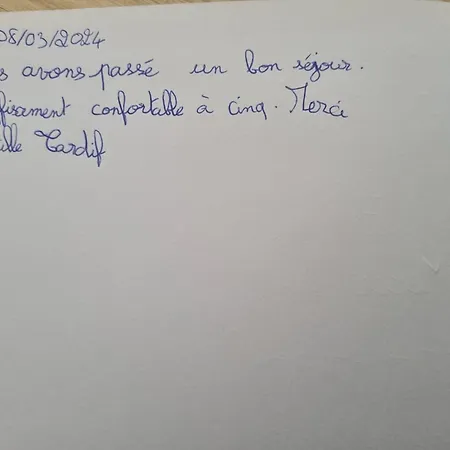 08/03/2024
s avons passé un bon séjour.
fisament confortable à cinq. Merci
ille Tardif